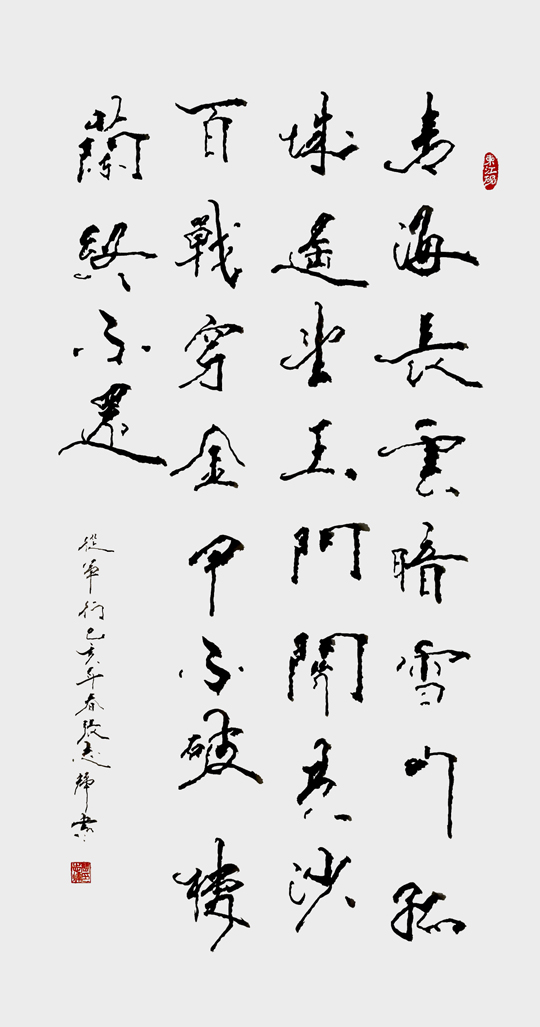 青海長雲暗雪山孤
城遙望玉門關黃沙
百戰穿金甲不破樓
蘭終不還
從軍行己亥年春張志輝書